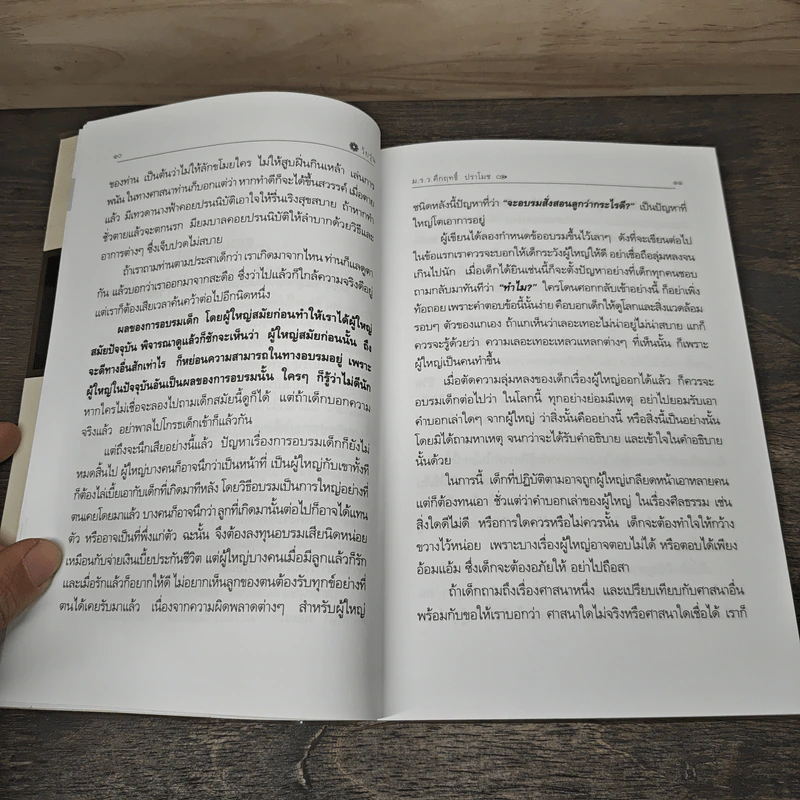 ๑๐
ของท่าน เป็นต้นว่าไม่ให้ลักขโมยใคร ไม่ให้สูบฝิ่นกินเหล้า เล่นการ
พนัน ในทางศาสนาท่านก็บอกแต่ว่า หากทำดีก็จะได้ขึ้นสวรรค์ เมื่อตาย
แล้ว มีเทวดานางฟ้าคอยปรนนิบัติเอาใจให้รื่นเริงสุขสบาย ถ้าหากทำ
ชั่วตายแล้วจะตกนรก มียมบาลคอยปรนนิบัติให้ลำบากด้วยวิธีและ
อาการต่างๆ ซึ่งเจ็บปวดไม่สบาย
ถ้าเราถามท่านตามประสาเด็กว่า เราเกิดมาจากไหน ท่านก็แลดูตา
กัน แล้วบอกว่าเราออกมาจากสะดือ ซึ่งว่าไปแล้วก็ใกล้ความจริงดีอยู่
แต่เราก็ต้องเสียเวลาค้นคว้าต่อไปอีกนิดหนึ่ง
ผลของการอบรมเด็ก โดยผู้ใหญ่สมัยก่อนทำให้เราได้ผู้ใหญ่
สมัยปัจจุบัน พิจารณาดูแล้วก็ชักจะเห็นว่า ผู้ใหญ่สมัยก่อนนั้น ถึง
จะดีทางอื่นสักเท่าไร ก็หย่อนความสามารถในทางอบรมอยู่ เพราะ
ผู้ใหญ่ในปัจจุบันอันเป็นผลของการอบรมนั้น ใครๆ ก็รู้ว่าไม่ดีนัก
หากใครไม่เชื่อจะลองไปถามเด็กสมัยนี้ดูก็ได้ แต่ถ้าเด็กบอกความ
จริงแล้ว อย่าพาลไปโกรธเด็กเข้าก็แล้วกัน
แต่ถึงจะนึกเสียอย่างนี้แล้ว ปัญหาเรื่องการอบรมเด็กก็ยังไม่
หมดสิ้นไป ผู้ใหญ่บางคนก็อาจนึกว่าเป็นหน้าที่ เป็นผู้ใหญ่กับเขาทั้งที
ก็ต้องไล่เบี้ยเอากับเด็กที่เกิดมาทีหลัง โดยวิธีอบรมเป็นการใหญ่อย่างที่
ตนเคยโดยมาแล้ว บางคนก็อาจนึกว่าลูกที่เกิดมานั้นต่อไปก็อาจได้แทน
ตัว หรืออาจเป็นที่พึ่งแก่ตัว ฉะนั้น จึงต้องลงทุนอบรมเสียนิดหน่อย
เหมือนกับจ่ายเงินเบี้ยประกันชีวิต แต่ผู้ใหญ่บางคนเมื่อมีลูกแล้วก็รัก
และเมื่อรักแล้วก็อยากให้ดี ไม่อยากเห็นลูกของตนต้องรับทุกข์อย่างที่
ตนได้เคยรับมาแล้ว เนื่องจากความผิดพลาดต่างๆ สำหรับผู้ใหญ่
ม.ร.ว.คึกฤทธิ์ ปราโมช ๑๑
ชนิดหลังนี้ปัญหาที่ว่า "จะอบรมสั่งสอนลูกว่ากระไรดี?" เป็นปัญหาที่
ใหญ่โตเอาการอยู่
ผู้เขียนได้ลองกำหนดข้ออบรมขึ้นไว้เลาๆ ดังที่จะเขียนต่อไป
ในข้อแรกเราควรจะบอกให้เด็กระวังผู้ใหญ่ให้ดี อย่าเชื่อถือลุ่มหลงจน
เกินไปนัก เมื่อเด็กได้ยินเช่นนี้ก็จะตั้งปัญหาอย่างที่เด็กทุกคนชอบ
ถามกลับมาทันทีว่า "ทำไม?" ใครโดนศอกกลับเข้าอย่างนี้ ก็อย่าเพิ่ง
ท้อถอย เพราะคำตอบข้อนี้นั้นง่าย คือบอกเด็กให้ดูโลกและสิ่งแวดล้อม
รอบๆ ตัวของแกเอง ถ้าแกเห็นว่าเลอะเทอะไม่น่าอยู่ไม่น่าสบาย แกก็
ควรจะรู้ด้วยว่า ความเลอะเทอะเหลวแหลกต่างๆ ที่เห็นนั้น ก็เพราะ
ผู้ใหญ่เป็นคนทำขึ้น
เมื่อตัดความลุ่มหลงของเด็กเรื่องผู้ใหญ่ออกได้แล้ว ก็ควรจะ
อบรมเด็กต่อไปว่า ในโลกนี้ ทุกอย่างย่อมมีเหตุ อย่าไปยอมรับเอา
คำบอกเล่าใดๆ จากผู้ใหญ่ ว่าสิ่งนั้นคืออย่างนี้ หรือสิ่งนี้เป็นอย่างนั้น
โดยมิได้ถามหาเหตุ จนกว่าจะได้รับคำอธิบาย และเข้าใจในคำอธิบาย
นั้นด้วย
ในการนี้ เด็กที่ปฏิบัติตามอาจถูกผู้ใหญ่เกลียดหน้าเอาหลายคน
แต่ก็ต้องทนเอา ชั่วแต่ว่าคำบอกเล่าของผู้ใหญ่ ในเรื่องศีลธรรม เช่น
สิ่งใดดีไม่ดี หรือการใดควรหรือไม่ควรนั้น เด็กจะต้องทำใจให้กว้าง
ขวางไว้หน่อย เพราะบางเรื่องผู้ใหญ่อาจตอบไม่ได้ หรือตอบได้เพียง
อ้อมแอ้ม ซึ่งเด็กจะต้องอภัยให้ อย่าไปถือสา
ถ้าเด็กถามถึงเรื่องศาสนาหนึ่ง และเปรียบเทียบกับศาสนาอื่น
พร้อมกับขอให้เราบอกว่า ศาสนาใดไม่จริงหรือศาสนาใดเชื่อได้ เราก็